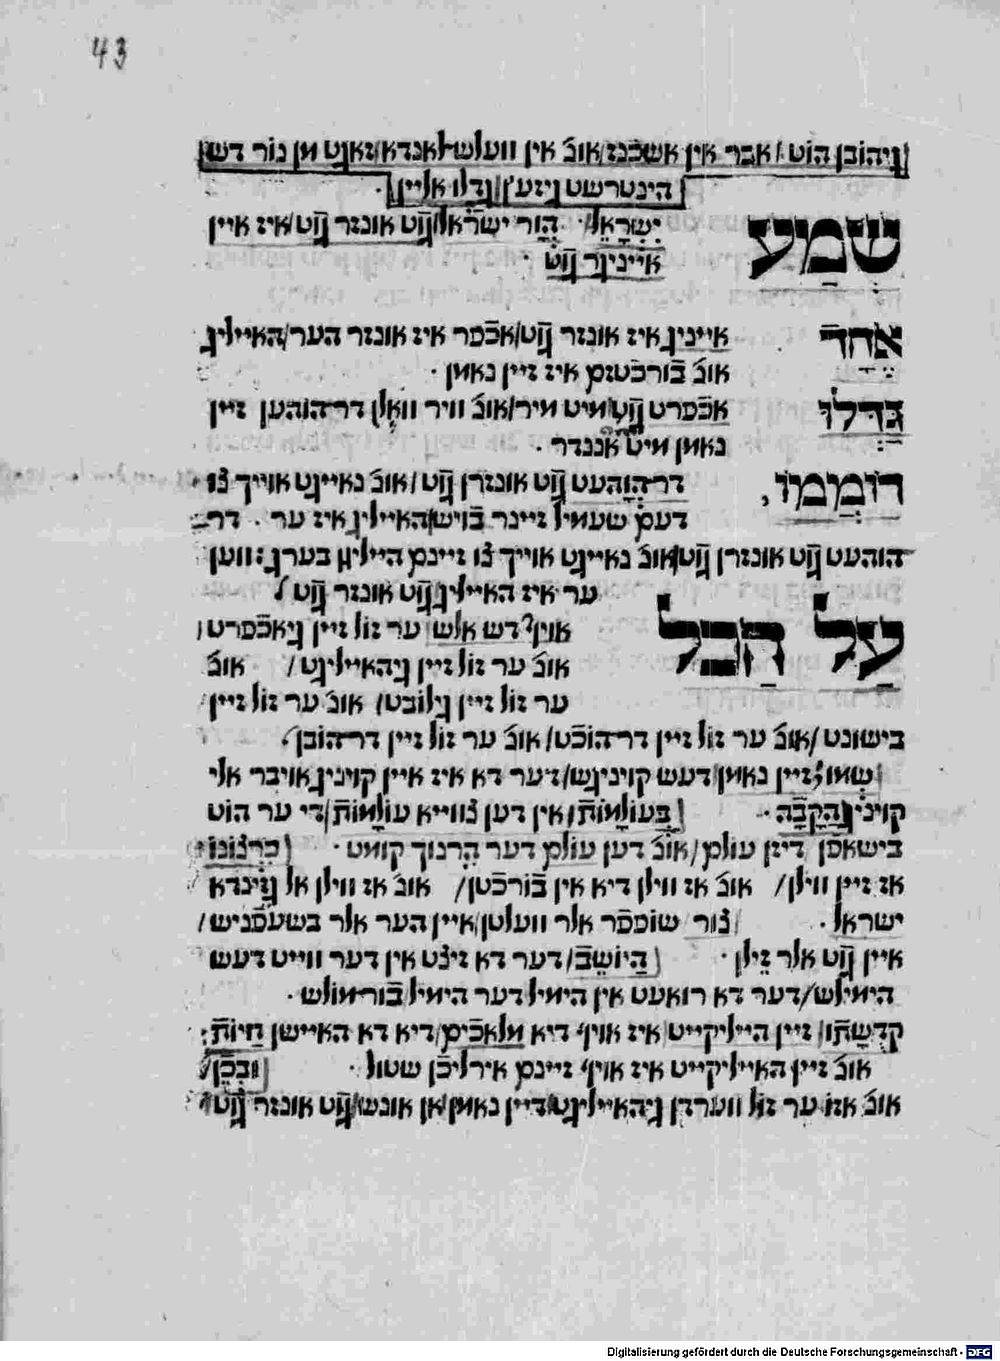 43
גיהובן הוט / אבר אין אשכנז / אונ' אין וועלש לאנדא / זאגט מן נור דש
הינטרשט גיזעץ / גדלו אליין .
שְׁמַע יִשְׂרָאֵל . הור ישראל / גוט אונזר גוט / איז איין
איינינר גוט .
אֶחָד איינין איז אונזר גוט / אכֿפר איז אונזר הער / האייליג
אונ' בורכטזם איז זיין נאמן .
גַּדְּלוּ אכֿפרט גוט / מיט מיר / אונ' וויר וואלן דרהוהען זיין
נאמן מיט אננדר .
רוֹמְמוּ דרהוהעט גוט אונזרן גוט / אונ' נאייגט אוייך צו
דעם שעמיל זיינר בויש / האייליג איז ער . דר
הוהעט גוט אונזרן גוט / אונ' נאייגט אוייך צו זיינם הייליגן בערג : ווען
ער איז האייליג גוט אונזר גוט /
עַל הַכֹּל אויף דש אלש ער זול זיין גיאכֿפרט /
אונ' ער זול זיין גיהאייליגט / אונ'
ער זול זיין גילובט / אונ' ער זול זיין
בישונט / אונ' ער זול זיין דרהוכט / אונ' ער זול זיין דרהובן /
שְׁמוֹ / זיין נאמן / דעש קויניגש / דער דא איז איין קויניג אויבר אלי
קויניג הַקָּבָּה . בָּעוֹלָמוֹת / אין דען צווייא עולָמות / די ער הוט
בישאפֿן דיזן עולם / אונ' דען עולם דער הרנוך קומט . כִרְצוֹנוֹ
אז זיין ווילן / אונ' אז ווילן דיא אין בורכטן / אונ' אז ווילן אל גיזינדא
ישראל . צוּר שופפר אלר וועלטן / איין הער אלר בשעפֿניש /
איין גוט אלר זילן . הַיּוֹשֵׁב / דער דא זיצט אין דער ווייט דעש
הימילש / דער דא רואעט אין הימיל דער הימיל בורמולש .
קְדֻשָּׁתוֹ / זיין הייליקייט / איז אויף דיא מלאכים / דיא דא האיישן חַיּוֹת :
אונ' זיין האייליקייט איז אויף זיינם אירליכֿן שטול . וּבְכֵן /
אונ' אזו ער זול ווערדן גיהאייליגט / דיין נאמן / אן אונש / גוט אונזר גוט /
Digitalisierung gefördert durch die Deutsche Forschungsgemeinschaft - DFG